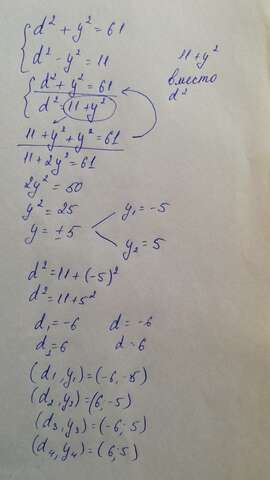 d² + y² = 61
d² - y² = 11
d² + y² = 61
d² = 11 + y²
11 + y²
вместо
d²
11 + y² + y² = 61
11 + 2y² = 61
2y² = 50
y² = 25
y = ±5
y₁ = -5
y₂ = 5
d² = 11 + (-5)²
d² = 11 + 5²
d₁ = -6 d = -6
d₂ = 6 d = 6
(d₁, y₁) = (-6, -5)
(d₂, y₂) = (6, -5)
(d₃, y₃) = (-6; 5)
(d₄, y₄) = (6; 5)